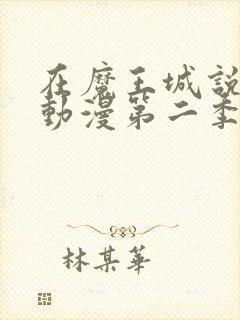 在魔王城說
動漫第二季
林某華